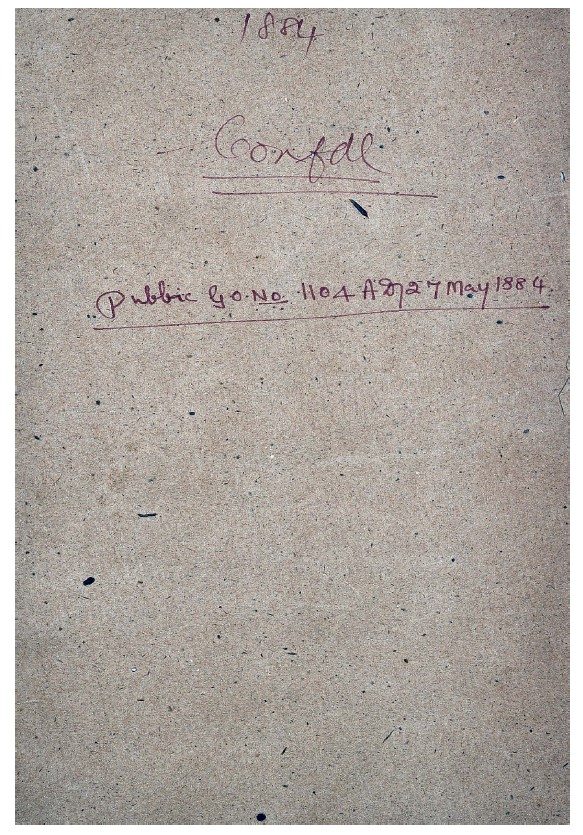 1884
Confdl
Public G.O. No. 1104 A D/ 27 May 1884.